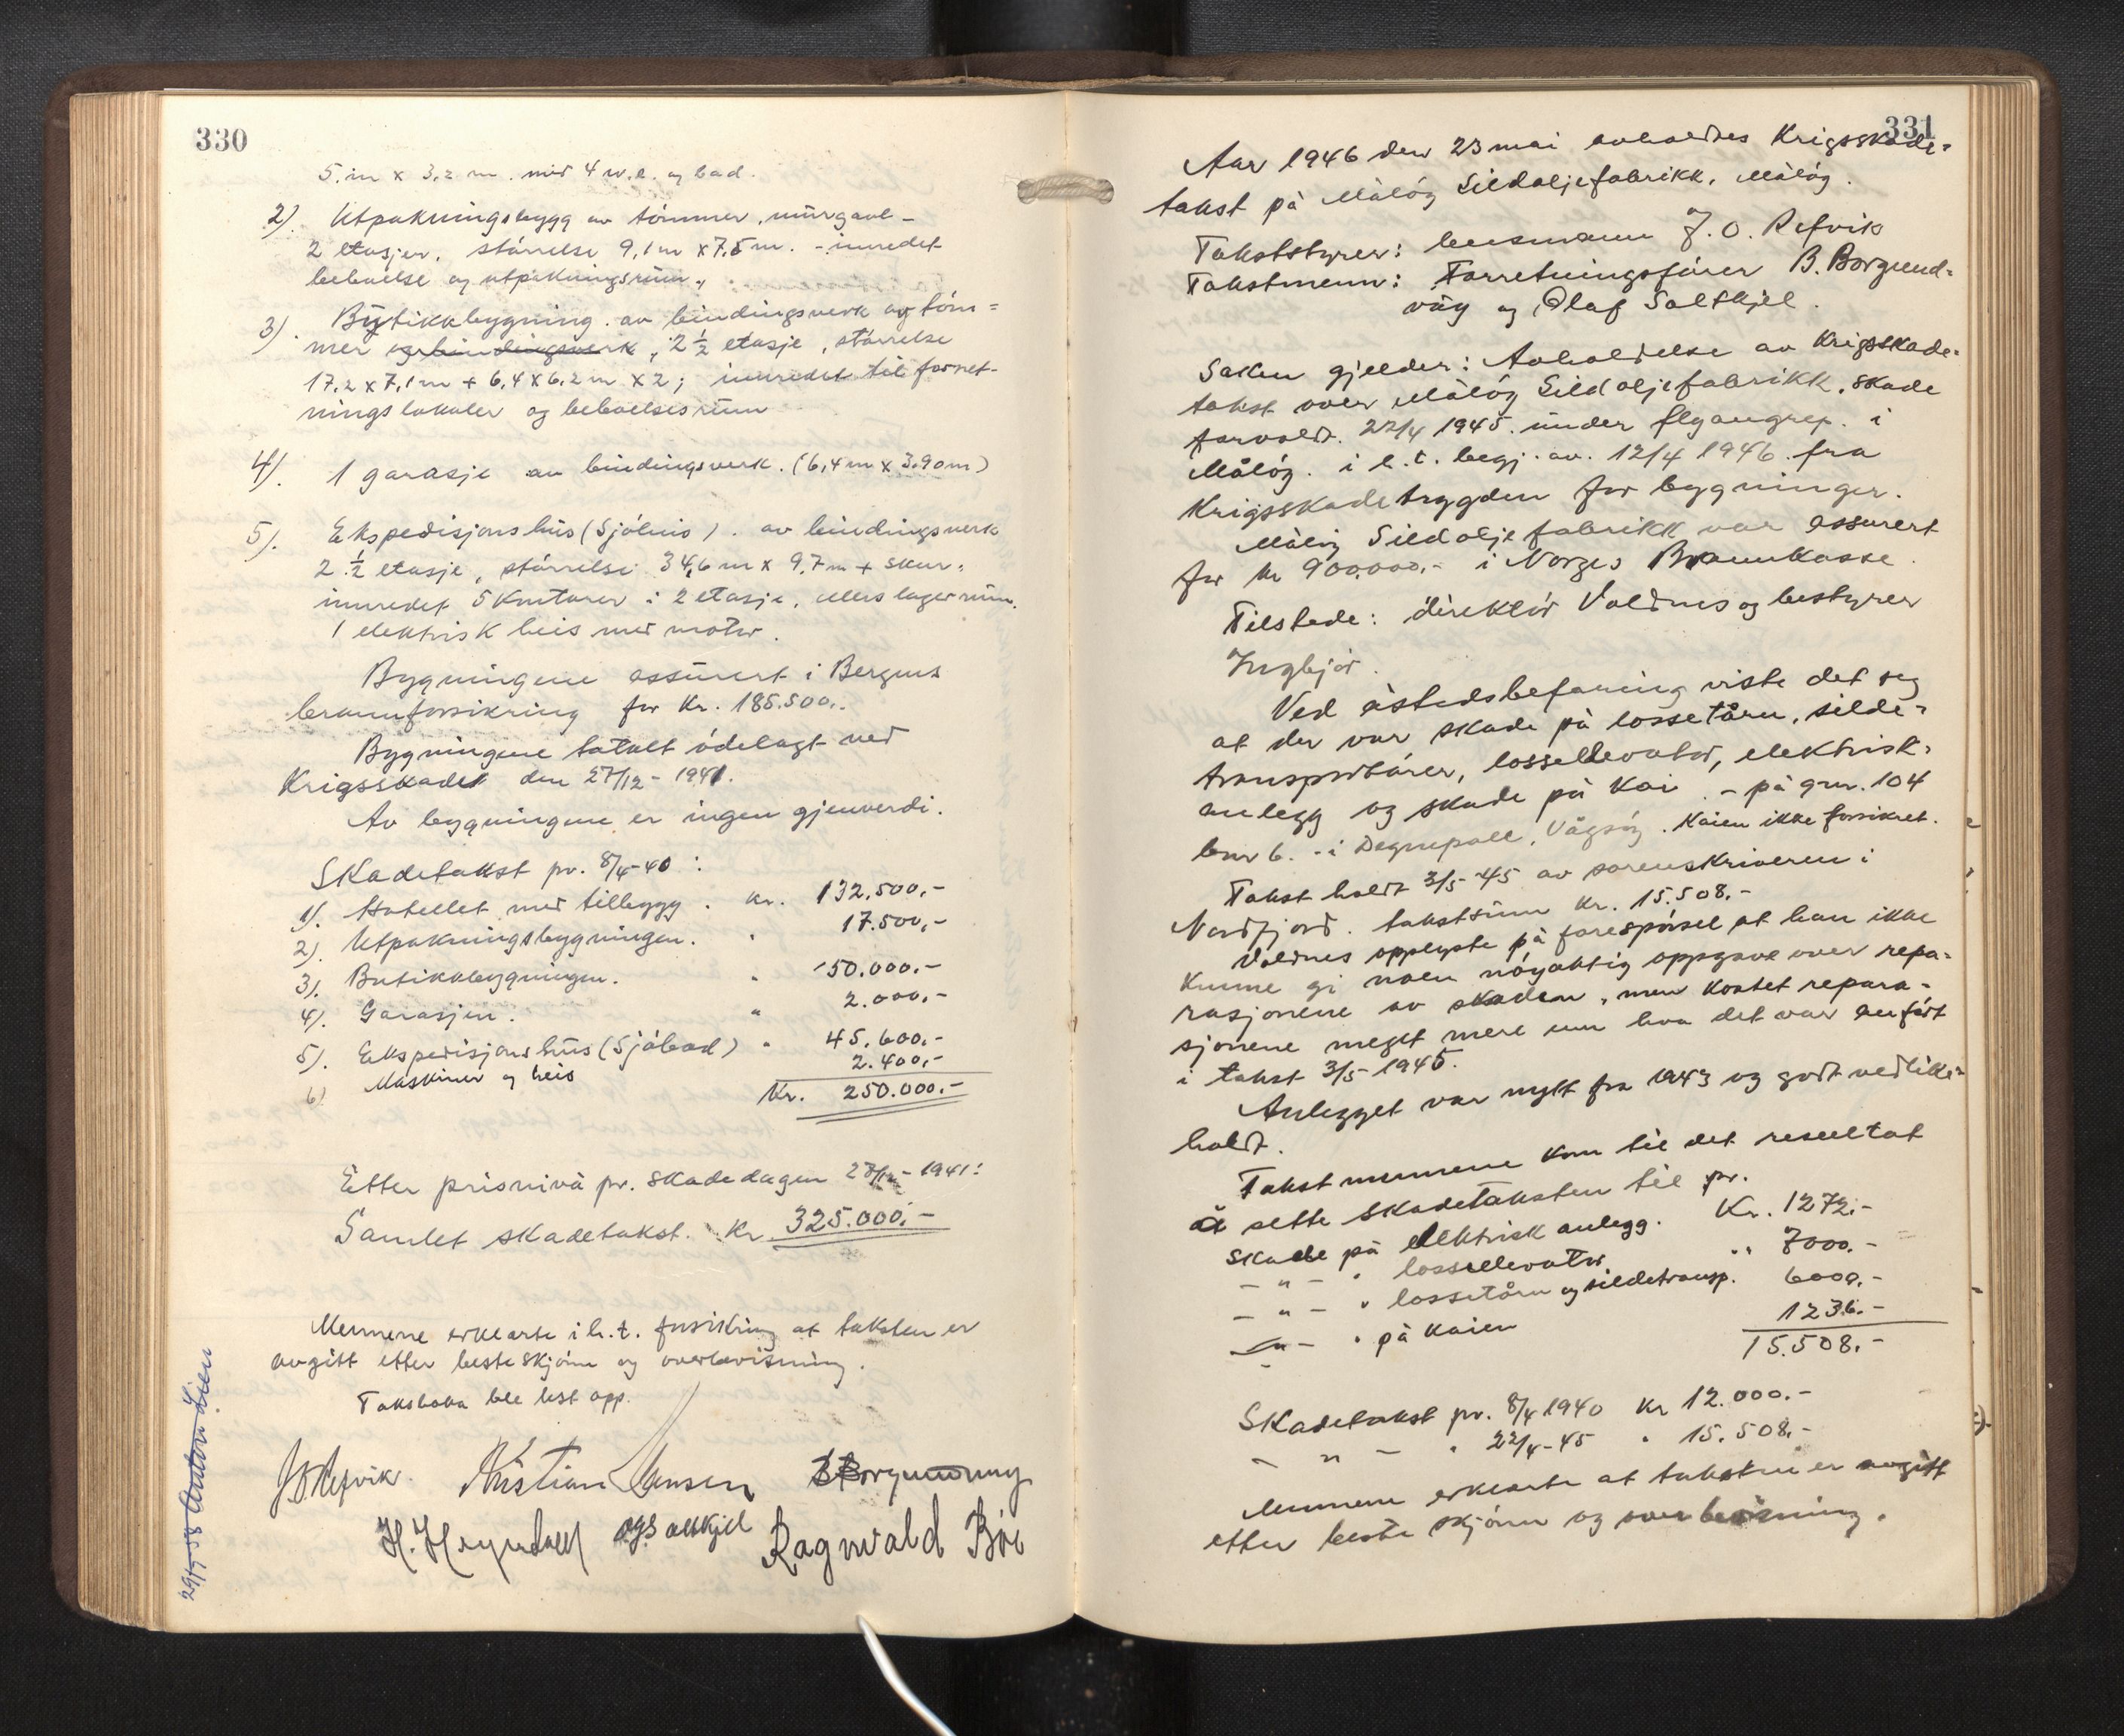 330
5. m x 3,2 m. med 4 w.c. og bad.
2). Utpakningsbygg av tömmer, mürgavl -
2 etasjer, störrelse 9,1 m x 7,5 m. - innredet
beboelse og utpakningsrüm.
3). Bütikkbygning. av bindingsverk og töm=
mer og bindingsverk, 2 ½ etasje, störrelse
17,2 x 7,1 m + 6,4 x 6,2 m x 2; innredet til forret-
ningslokaler og beboelsesrüm
4). 1 garasje av bindingsverk. (6,4 m x 3,90 m)
5). Ekspedisjonshüs (Sjöhüs). av bindingsverk
2 ½ etasje, störrelse 34,6 m x 9,7 m + skur,
innredet 5 Kontorer i 2 etasje, ellers lagerrüm.
1 elektrisk heis med motor.
Bygningene assürert i Bergens
brannforsikring for Kr. 185.500,.
Bygningene totalt ödelagt ved
Krigsskade den 27/12 - 1941.
Av bygningene er ingen gjenverdi.
Skadetakst pr. 8/4-40 :
1). Hotellet med tillegg . Kr. 132.500,-
2). Utpakningsbygningen. " 17.500,-
3). Butikkbygningen. " 50.000.-
4). Garasjen. " 2.000,-
5). Ekspedisjonshüs (Sjöbod) " 45.600.-
6) Maskiner og heis 2.400,-
Kr. 250.000.-
Etter prisnivå pr. skadedagen 27/12 - 1941:
Samlet skadetakst. Kr. 325.000.-
Mennene erklærte i h.t. forsikring at taksten er
avgitt etter beste skjönn og overbevisning.
Takstboka ble lest opp.
JORefvik. Kristian Jensen BBorgundvåg
Ragnvald Böe
331
Aar 1946 den 23 mai avholdtes Krigsskade=
takst på Målöy Sildoljefabrikk, Målöy.
Takststyrer: lensmann J. O. Refvik
Takstmenn: Forretningsförer B. Borgund=
våg og Olaf Saltkjel.
Saken gjelder: Avholdelse av Krigsskade=
takst over Målöy Sildoljefabrikk, skade
forvoldt. 22/4 1945. ünder flyangrep. i
Målöy. i h.t. begj. av. 12/4 1946. fra
Krigsskadetrygden for bygninger.
Målöy Sildoljefabrikk var assurert
for kr 900.000,- i Norges Brannkasse.
Tilstede: direktör Voldnes og bestyrer
Ingbjör.
Ved åstedsbefaring viste det seg
at der var skade på lossetårn, silde=
transportörer, losselevator, elektrisk=
anlegg og skade på Kai - på gnr. 104
bnr 6. - i Degnepoll, Vågsöy. Kaien ikke forsikret.
Takst holdt 3/5-45 av sorenskriveren i
Nordfjord. takstsüm Kr. 15.508.-
Voldnes opplyste på forespörsel at han ikke
kunne gi noen nöyaktig oppgave over repa=
rasjonene av skaden, men kostet repara-
sjonene meget mere enn hva det var anfört
i takst 3/5-1945.
Anlegget var nytt fra 1943 og godt vedlike=
holdt.
Takstmennene kom til det resultat
å sette skadetaksten til pr.
Skade på elektrisk anlegg. Kr. 1272.-
- " - " losselevator " 7000.-
- " - " lossetårn og sildetransp. 6000.-
- " - " på kaien 1236.-
15.508.-
Skadetakst pr. 8/4 1940 Kr 12.000.-
- " - " 22/4-45 " 15.508.-
Mennene erklærte at taksten er avgitt
etter beste skjönn og overbevisning.